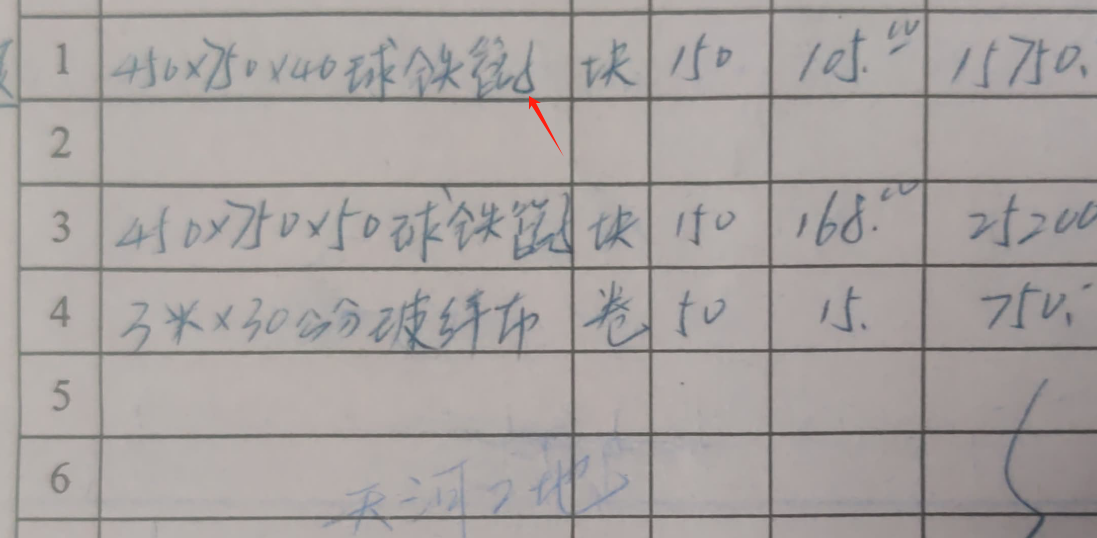 1 450×750×40球铁篦 块 150 105.00 15750.
2
3 450×750×50球铁篦 块 150 168.00 25200
4 3米×30公分玻纤布 卷 50 15. 750.
5
6 天河工地